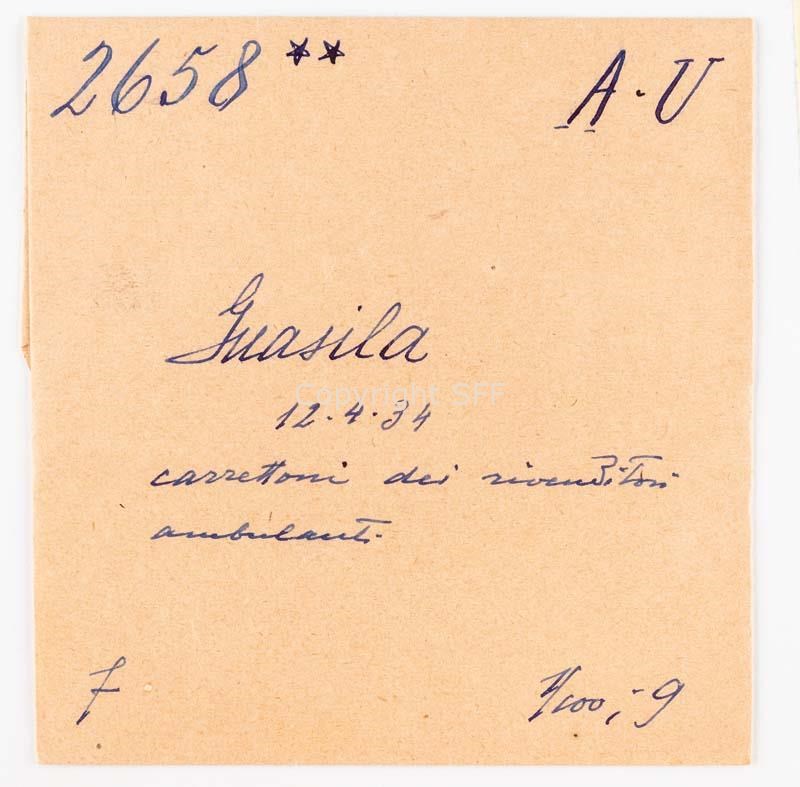 2658 ** A-U
Guasila
Copyright SFF
12.4.34
carrettoni dei rivenditori
ambulanti
7
1/100,-9